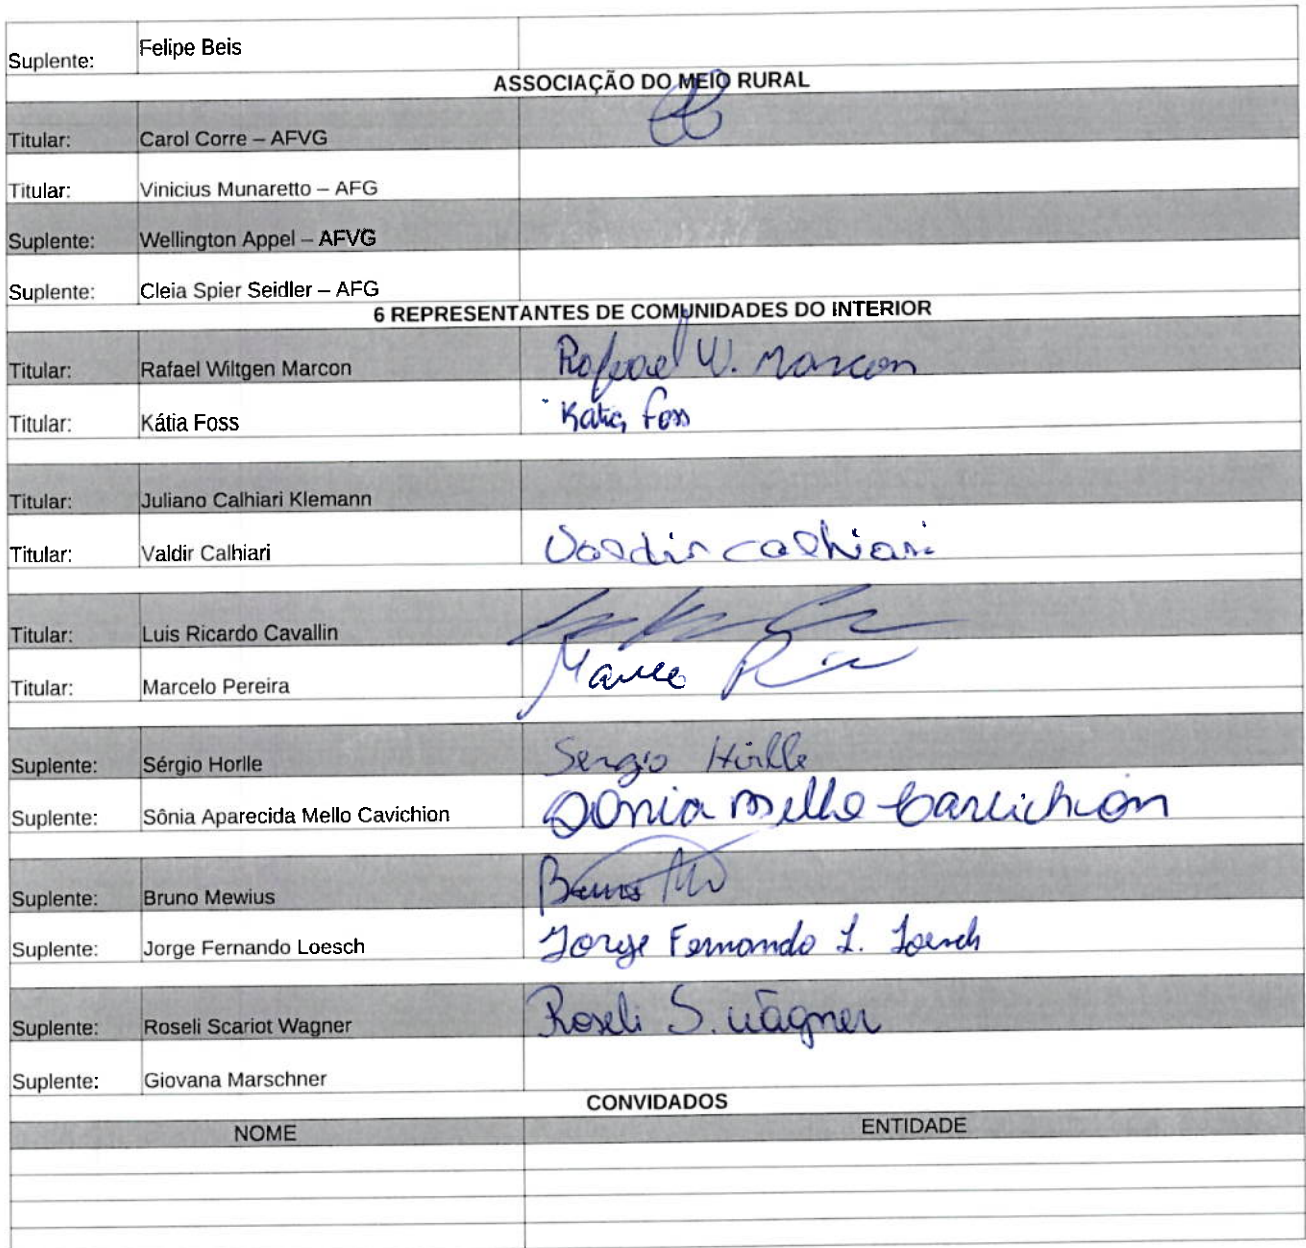 Suplente: Felipe Beis
ASSOCIAÇÃO DO MEIO RURAL
Titular: Carol Corre – AFVG
Titular: Vinicius Munaretto – AFG
Suplente: Wellington Appel – AFVG
Suplente: Cleia Spier Seidler – AFG
6 REPRESENTANTES DE COMUNIDADES DO INTERIOR
Titular: Rafael Wiltgen Marcon Rafael W. Marcon
Titular: Kátia Foss Katia Foss
Titular: Juliano Calhiari Klemann
Titular: Valdir Calhiari Valdir Calhiari
Titular: Luis Ricardo Cavallin
Titular: Marcelo Pereira
Suplente: Sérgio Horlle Sergio Horlle
Suplente: Sônia Aparecida Mello Cavichion Sônia Mello Cavichion
Suplente: Bruno Mewius Bruno
Suplente: Jorge Fernando Loesch Jorge Fernando L. Loesch
Suplente: Roseli Scariot Wagner Roseli S. Wagner
Suplente: Giovana Marschner
CONVIDADOS
NOME ENTIDADE